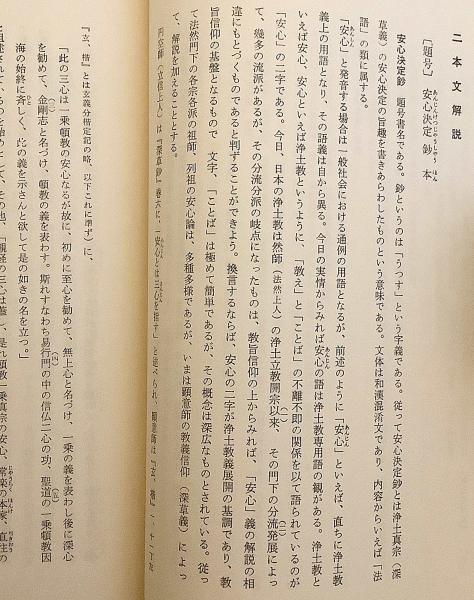 二 本 文 解 説
〔題号〕 安心決定鈔 本
安心決定鈔 題号書名である。鈔というのは「うつす」という字義である。従って安心決定鈔とは浄土真宗（深
草義）の安心決定の旨趣を書きあらわしたものという意味である。文体は和漢混淆文であり、内容からいえば「法
語」の類に属する。
「安心」と発音する場合は一般社会における通例の用語となるが、前述のように「安心」といえば、直ちに浄土教
義上の用語となり、その語義は自から異る。今日の実情からみれば安心の語は浄土教専用語の観がある。浄土教と
いえば安心、安心といえば浄土教というように、「教え」と「ことば」の不離不即の関係を以て語られているのが
「安心」の二字である。今日、日本の浄土教は然師（法然上人）の浄土立教開宗以来、その門下の分流発展によっ
て、幾多の流派があるが、その分流分派の岐点になったものは、教旨信仰の上からみれば、「安心」義の解説の相
違にもとづくものであると判ずることができよう。換言するならば、安心の二字が浄土教義展開の基調であり、教
旨信仰の基盤となるもので 文字、「ことば」は極めて簡単であるが、その概念は深広なものとされている。従っ
て法然門下の各宗各派の祖師、列祖の安心論は、多種多様であるが、いまは顕意師の教義信仰（深草義）によっ
て、解説を加えることとする。
円空師（立信上人）は『深草鈔』巻六に、「安心とは三心を指す」と述べられ、顕意師は『玄、楷』
『玄、楷』とは玄義分楷定記の略、以下これに準ず）に、
「此の三心は一乗頓教の安心なるが故に、初めに至心を勧めて、無上心と名づけ、一乗の義を表わし後に深心
を勧めて、金剛志と名づけ、頓教の義を表わす。斯れすなわち易行門の中の信仏二心の功、聖道の一乗頓教因
海の始終に斉しく、此の義を示さんと欲して是の如きの名を立つ。」